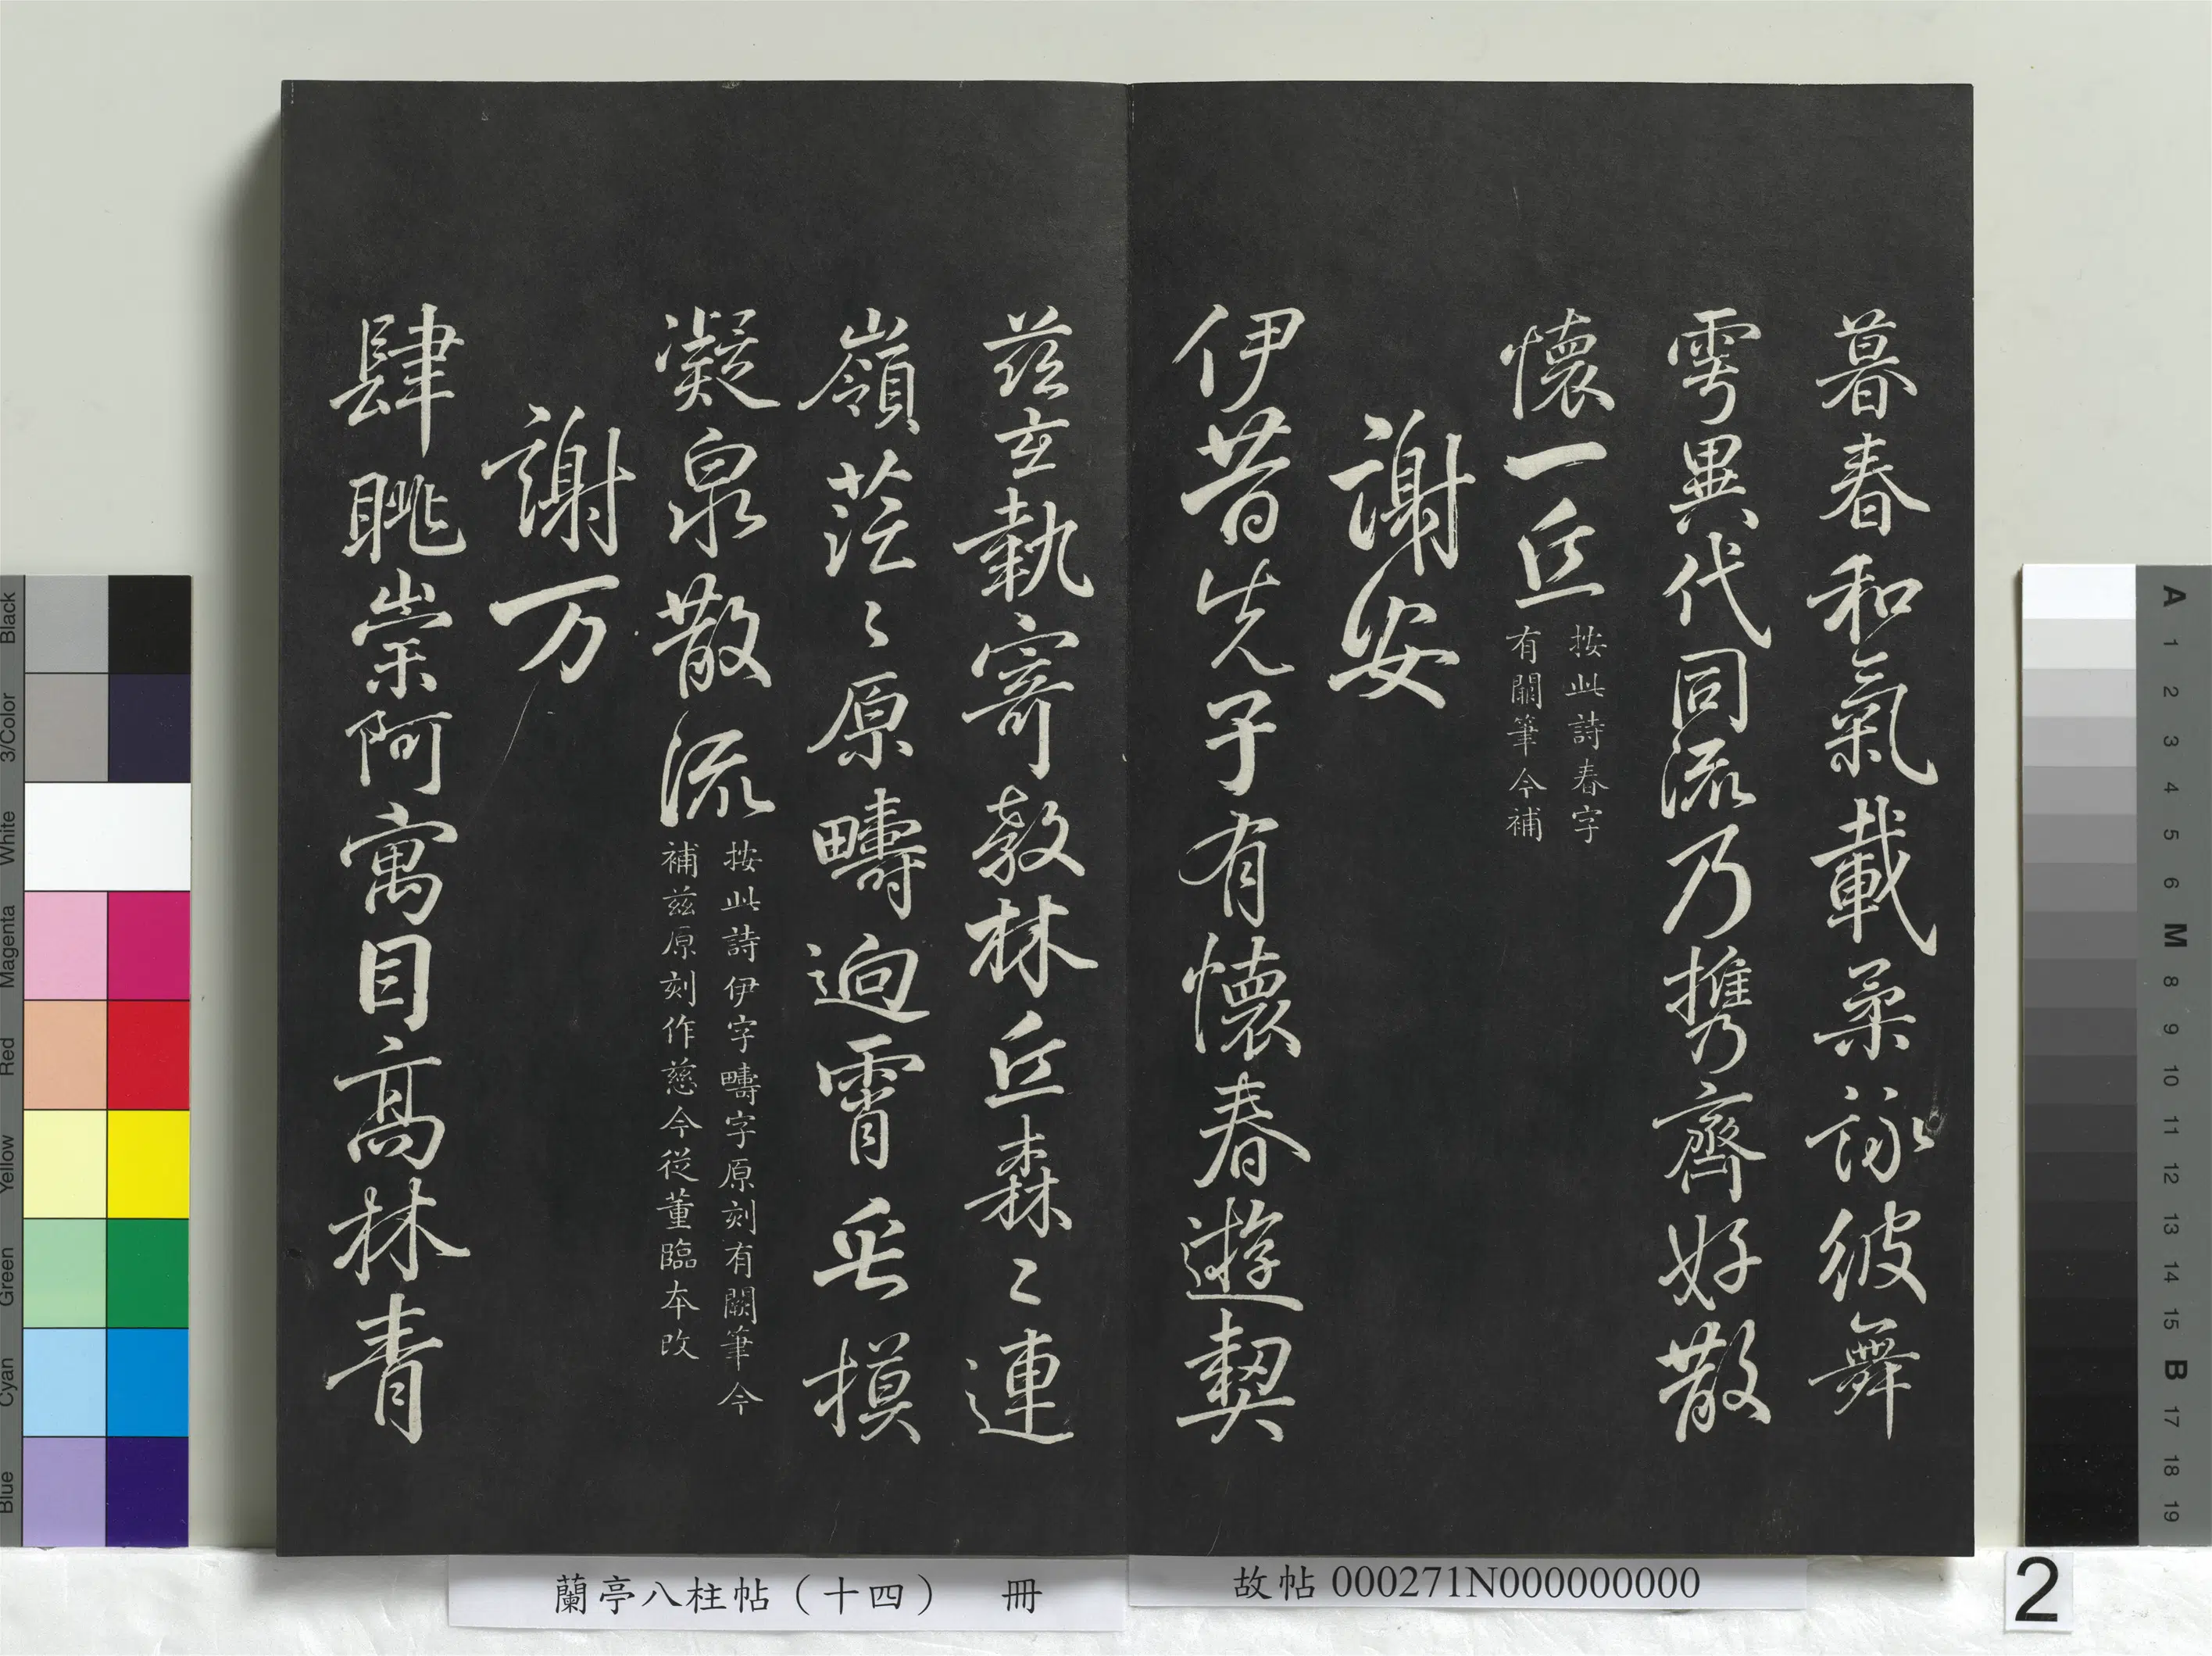 暮春和氣載柔詠彼舞
雩異代同流乃攜齊好散
懷一丘
按此詩春字
有闕筆今補
謝安
伊昔先子有懷春遊契
茲玄執寄敖林丘森〻連
嶺茫〻原疇迥霄垂模
凝泉散流
按此詩伊字疇字原刻有闕筆今
補茲原刻作慈今從董臨本改
謝万
肆眺崇阿寓目高林青
蘭亭八柱帖（十四） 冊
故帖 000271N000000000
2
Black
3/Color
White
Magenta
Red
Yellow
Green
Cyan
Blue
A
1
2
3
4
5
6
M
8
9
10
11
12
13
14
15
B
17
18
19